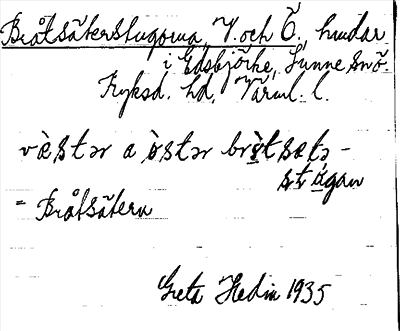 Bråtsäterstugorna, V. och Ö., hudar
i Edsbjörke, Sunne snõ.
Fryksd. hd, Värml. l.
vèstər a òstər brǫ̀tsætə-
stǫ́gan
= Bråtsätern
Greta Hedin 1935